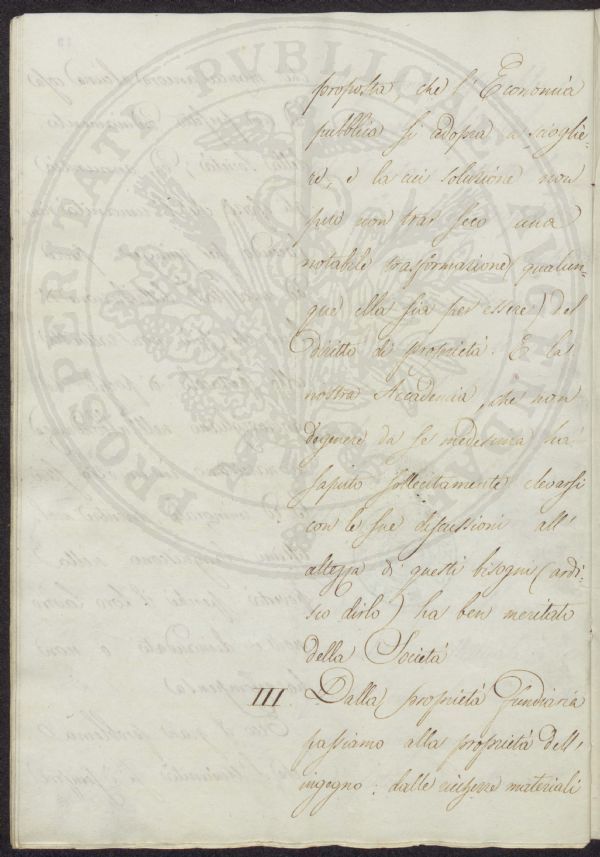 proposta, che l'Economia
pubblica si adopra a scioglie-
re, e la cui soluzione non
può non trar seco una
notabile trasformazione (qualun-
que ella sia per essere) del
Diritto di proprietà. E la
nostra Accademia, che non
degenere da se medesima ha
saputo sollecitamente elevarsi
con le sue discussioni all'
altezza di questi bisogni (ardi-
sco dirlo) ha ben meritato
della Società
III Dalla proprietà fundiaria
passiamo alla proprietà dell'
ingegno: dalle ricchezze materiali
PROSPERITATI PUBLICAE AUGENDAE